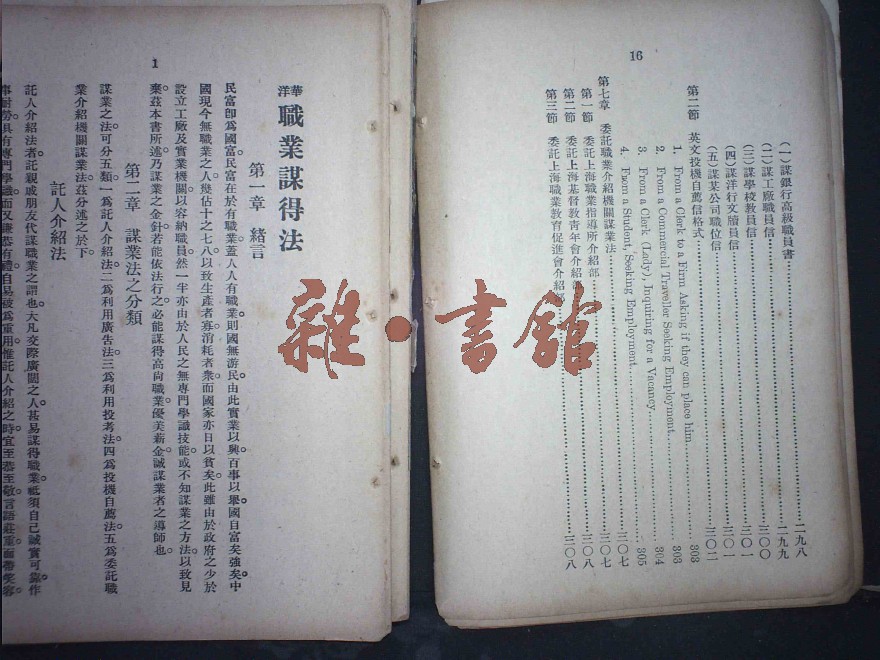 16
(一)謀銀行高級職員書……二九八
(二)謀工廠職員信……二九九
(三)謀學校教員信……三〇〇
(四)謀洋行文牘員信……三〇一
(五)謀某公司職位信……三〇二
第二節 英文投機自薦信格式
1. From a Clerk to a Firm Asking if they can place him. 303
2. From a Commercial Traveller Seeking Employment... 303
3. From a Clerk (Lady) Inquiring for a Vacancy...... 304
4. From a Student, Seeking Employment...... 305
第七章 委託職業介紹機關謀業法……三〇七
第一節 委託上海職業指導所介紹部……三〇七
第二節 委託上海基督教青年會介紹部……三〇八
第三節 委託上海職業教育促進會介紹部……三〇八
1
華洋 職業謀得法
第一章 緒言
民富卽爲國富。民富在於有職業。蓋人人有職業。則國無游民。由此實業以興。百事以舉。國自富矣強矣。中
國現今無職業之人。幾佔十之七八。以致生產者寡。消耗者衆。而國家亦日以貧矣。此雖由於政府之少於
設立工廠及實業機關以容納職員。然一半亦由於人民之無專門學識技能。或不知謀業之方法。以致見
棄。茲本書所述。乃謀業之金針。若能依法行之。必能謀得高尚職業。優美薪金。誠謀業者之導師也。
第二章 謀業法之分類
謀業之法。可分五類。一爲託人介紹法。二爲利用廣告法。三爲利用投考法。四爲投機自薦法。五爲委託職
業介紹機關謀業法。茲分述之於下。
託人介紹法
託人介紹法者。託親戚朋友代謀職業之謂也。大凡交際廣闊之人。甚易謀得職業。祇須自己誠實可靠。作
事耐勞。具有專門學識。而又謙恭有禮。自易被爲重用。惟託人介紹之時。宜至恭至敬。言語莊重。面帶笑容
雜·書館